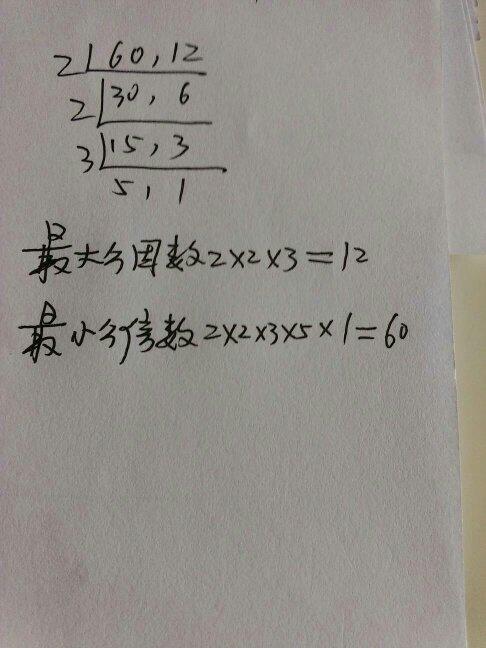 2 60, 12
2 30, 6
3 15, 3
5, 1
最大公因数2×2×3=12
最小公倍数2×2×3×5×1=60